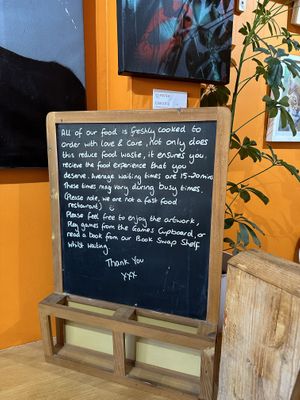 All of our food is freshly cooked to
order with love & care, Not only does
this reduce food waste, it ensures you
recieve the food experience that you
deserve. Average waiting times are 15-20mins
These times may vary during busy times.
(Please note, we are not a fast food
restaurant)
Please feel free to enjoy the artwork,
Play games from the Games Cupboard, or
read a book from our Book Swap Shelf
Whilst waiting.
Thank You
xxx